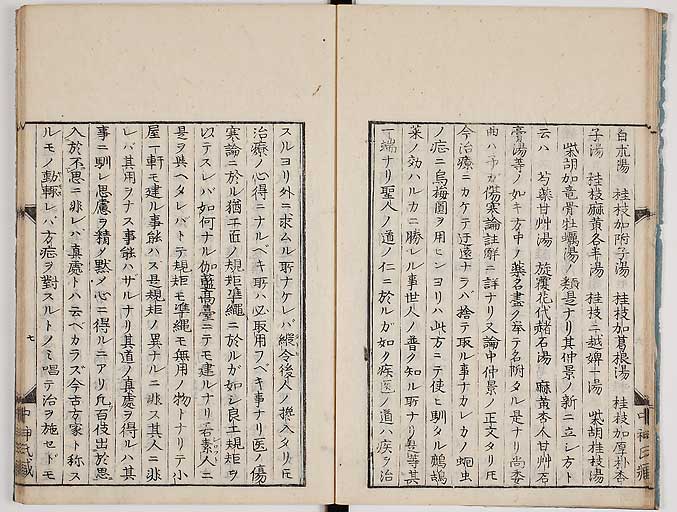 白朮湯 桂枝加附子湯 桂枝加葛根湯 桂枝加厚朴杏
子湯 桂枝麻黄各半湯 桂枝二越婢一湯 柴胡桂枝湯
柴胡加竜骨牡蠣湯ノ類是ナリ其仲景ノ新ニ立シ方ト
云ハ 芍薬甘艸湯 旋覆花代赭石湯 麻黄杏人甘艸石
膏湯等ノ如キ方中ノ薬名盡ク挙テ名附タル是ナリ尚委
曲ハ予ガ傷寒論註解ニ詳ナリ又論中仲景ノ正文タリ𪜈
今治療ニカケテ迂遠ナラバ捨テ取ル事ナカレカノ蛔虫
ノ症ニ烏梅圓ヲ用ヒンヨリハ此方ニテ使ヒ馴タル鷓鴣
菜ノ効ハルカニ勝レル事世人ノ普ク知ル所ナリ是等其
一端ナリ聖人ノ道ノ仁ニ於ルガ如ク疾医ノ道ハ疾ヲ治
スルヨリ外ニ求ムル所ナケレバ縦令後人ノ攙入タリ𪜈
治療ノ心得ニナルベキ所ハ必取用フベキ事ナリ医ノ傷
寒論ニ於ル猶工匠ノ規矩準縄ニ於ルガ如シ良工規矩ヲ
以テスレバ如何ナル伽藍高臺ニテモ建ルナリ若素人ニ
是ヲ與ヘタレバトテ規矩モ準縄モ無用ノ物トナリテ小
屋一軒モ建ル事能ハズ是規矩ノ異ナルニ非ス其人ニ非
レバ其用ヲナス事能ハザルナリ其道ノ真處ヲ得ルハ其
事ニ馴レ思慮ヲ精ク黙メ心ニ得ルニアリ凡百伎出於思
入於不思ニ非レバ真處トハ云ベカラズ今古方家ト称ス
ルモノ動輒レバ方症ヲ對スルトノミ唱テ治ヲ施セドモ
七
中神氏蔵